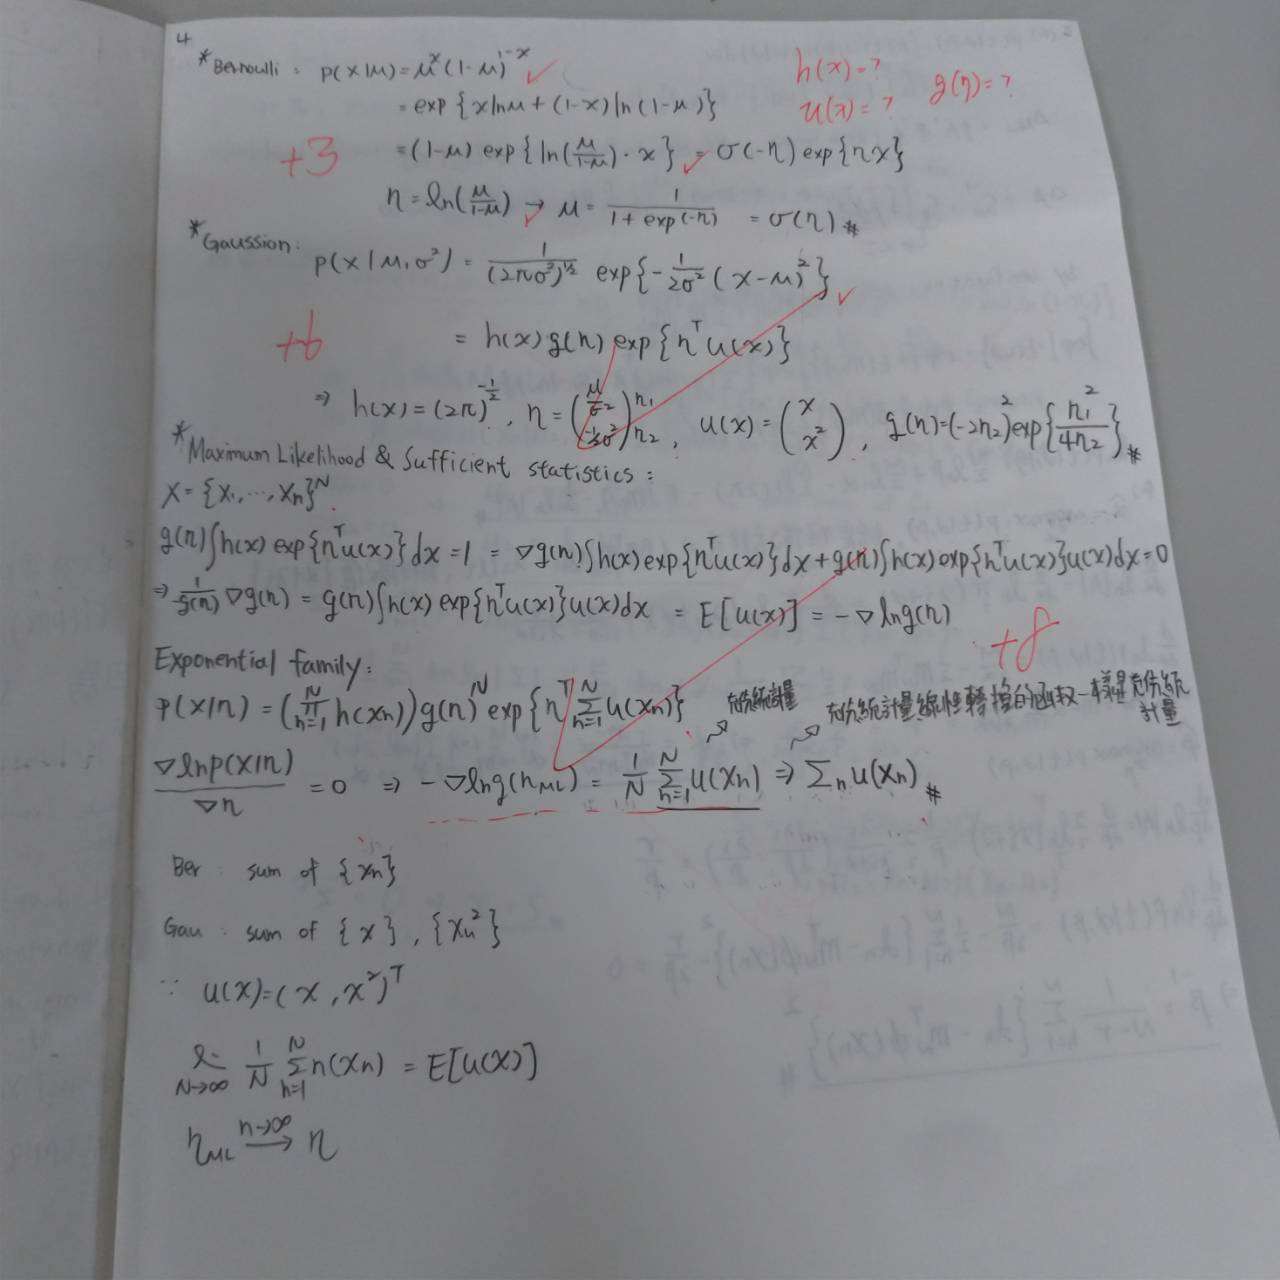 4
*Bernoulli : p(x|μ) = μ^x (1-μ)^{1-x} ✓
h(x) = ?
u(x) = ? g(η) = ?
= exp {x ln μ + (1-x) ln (1-μ)}
+3
= (1-μ) exp {ln(μ/(1-μ)) · x} ✓ = σ(-η) exp{ηx}
η = ln(μ/(1-μ)) → μ = 1/(1 + exp(-η)) = σ(η) #
*Gaussion:
p(x|μ, σ²) = 1/(2πσ²)^{1/2} exp{-1/(2σ²) (x-μ)²} ✓
+6
= h(x) g(η) exp{η^T u(x)}
⇒ h(x) = (2π)^{-1/2}, η = (μ/σ² ; -1/2σ²) η₁ η₂, u(x) = (x ; x²), g(η) = (-2η₂)² exp{η₁²/4η₂} #
*Maximum Likelihood & Sufficient statistics :
X = {x₁, ..., xₙ}^N
g(η)∫h(x) exp{η^T u(x)} dx = 1 = ▽g(η)∫h(x) exp{η^T u(x)} dx + g(η)∫h(x) exp{η^T u(x)} u(x) dx = 0
⇒ 1/g(η) ▽g(η) = g(η)∫h(x) exp{η^T u(x)} u(x) dx = E[u(x)] = -▽ln g(η)
+8
Exponential family:
p(X|η) = (∏_{n=1}^{N} h(xn)) g(η)^N exp{η^T ∑_{n=1}^{N} u(xn)}
充份統計量
充份統計量線性轉換的函数一樣是充份統計量
▽ln p(X|η)/▽η = 0 ⇒ -▽ln g(η_ML) = 1/N ∑_{n=1}^{N} u(xn) ⇒ ∑ₙ u(xn) #
Ber : sum of {xn}
Gau : sum of {x}, {xn²}
∵ u(x) = (x, x²)^T
N→∞ 1/N ∑_{n=1}^{N} n(xn) = E[u(x)]
η_ML n→∞ → η